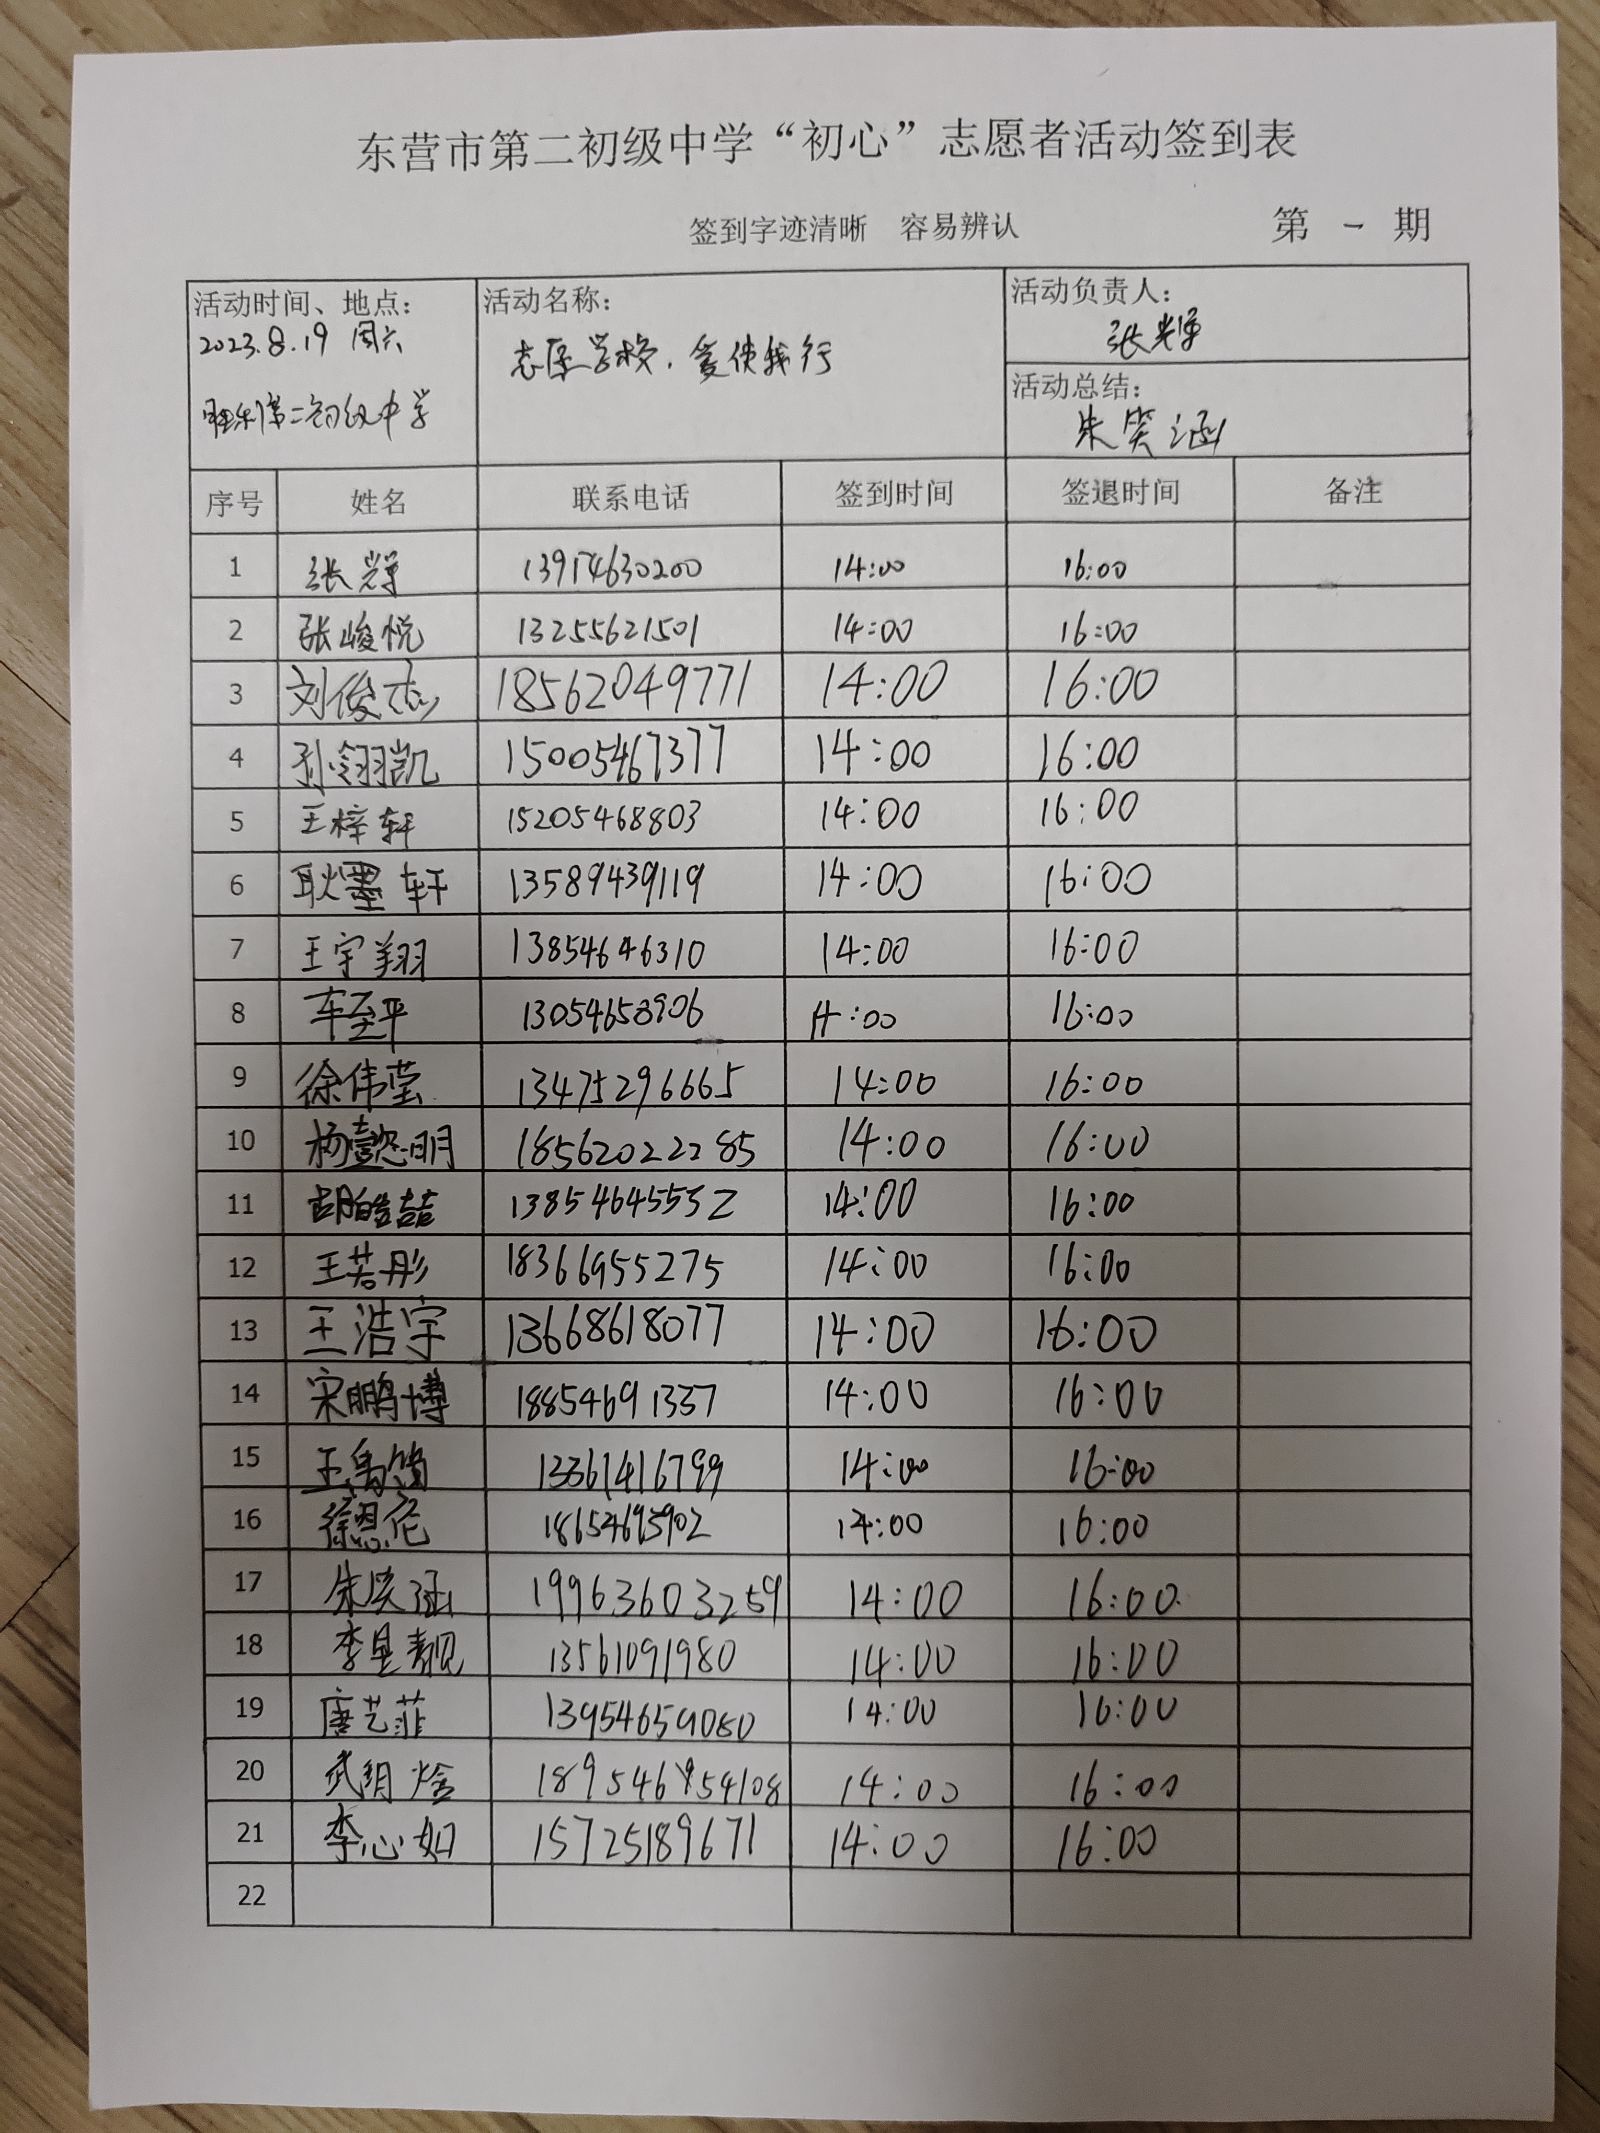 东营市第二初级中学“初心”志愿者活动签到表
签到字迹清晰 容易辨认 第 一 期
活动时间、地点: 活动名称: 活动负责人:
2023.8.19 周六 志愿学校,爱使我行 张光军
活动总结:
胜利第二初级中学 朱笑涵
序号 姓名 联系电话 签到时间 签退时间 备注
1 张 13914630200 14:00 16:00
2 张峻悦 13255621501 14:00 16:00
3 刘俊杰 18562049771 14:00 16:00
4 孙翎凯 15005467377 14:00 16:00
5 王梓轩 15205468803 14:00 16:00
6 耿墨轩 13589439119 14:00 16:00
7 王宇翔 13854646310 14:00 16:00
8 车至平 13054658906 14:00 16:00
9 徐伟莹 13475296665 14:00 16:00
10 杨懿明 18562022285 14:00 16:00
11 胡皓喆 13854645532 14:00 16:00
12 王若彤 18366955275 14:00 16:00
13 王浩宇 13668618077 14:00 16:00
14 宋鹏博 18854691337 14:00 16:00
15 王禹 13361416799 14:00 16:00
16 徐恩伦 18654695902 14:00 16:00
17 朱笑涵 19963603259 14:00 16:00
18 李星靓 13561091980 14:00 16:00
19 唐艺菲 13954659080 14:00 16:00
20 武玥焓 14:00 16:00
21 李心如 15725189671 14:00 16:00
22